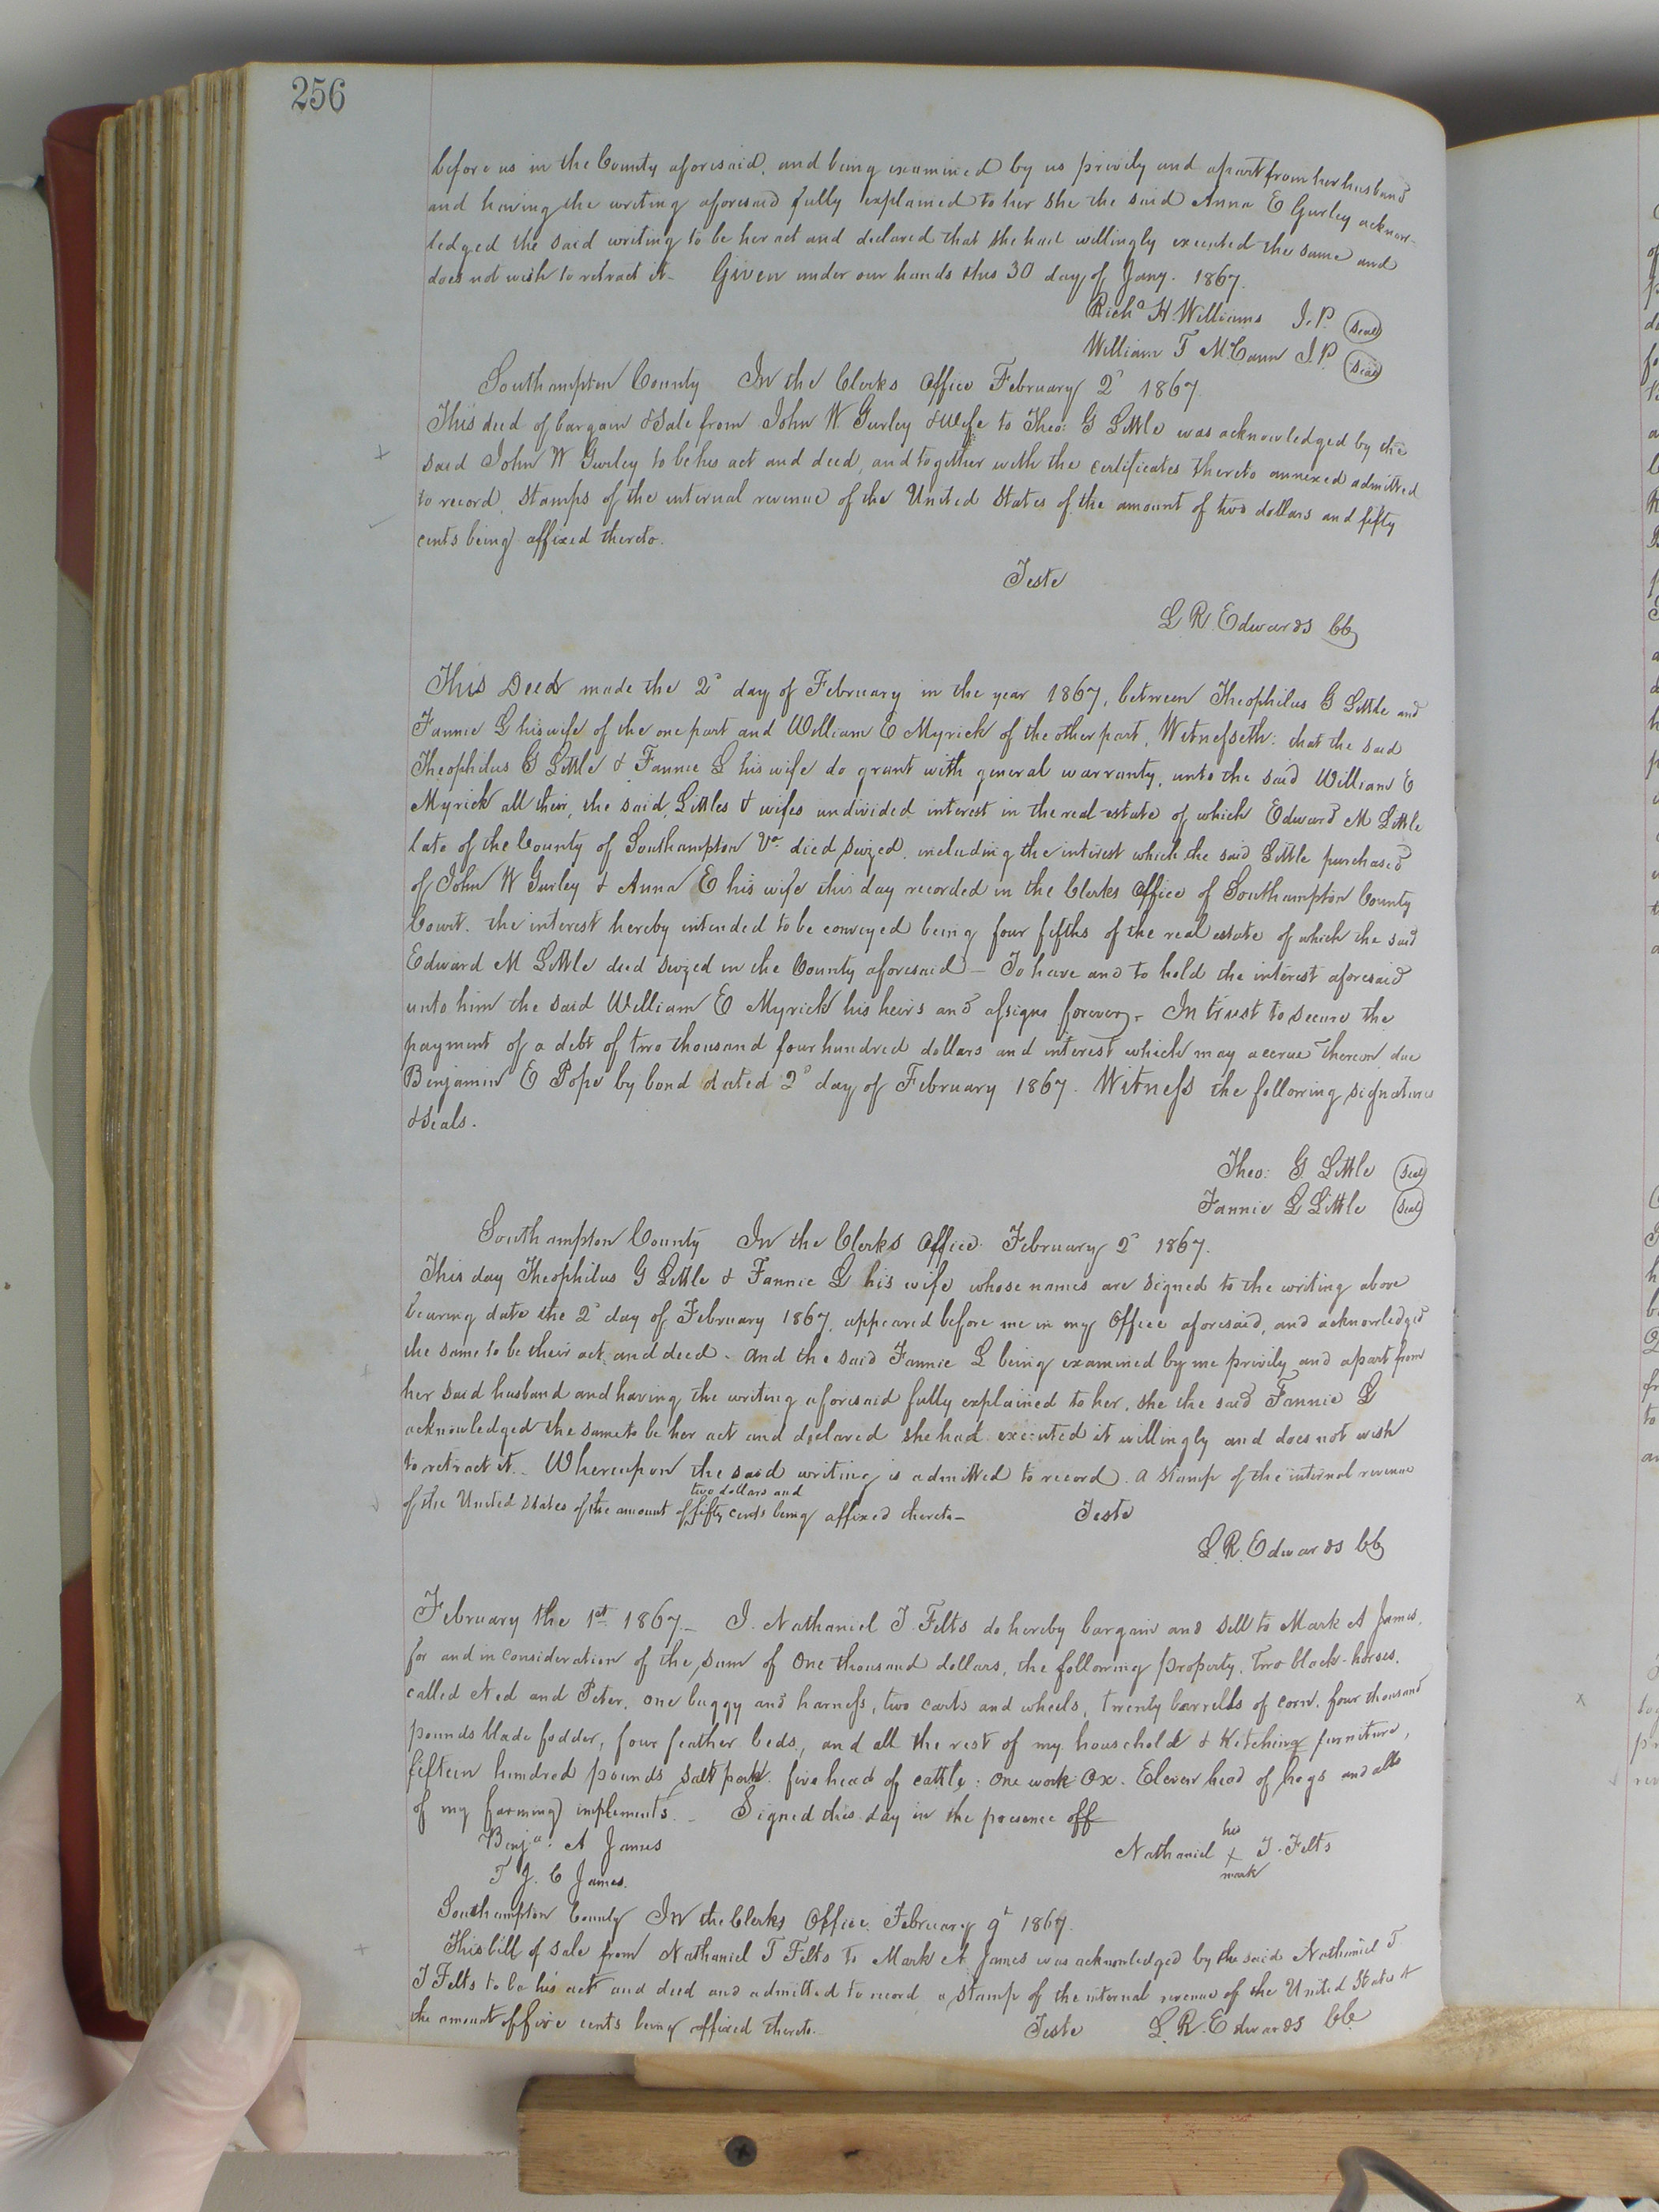 256
before us in the County aforesaid, and being examined by us privily and apart from her husband
and having the writing aforesaid fully explained to her She the said Anna E Gurley acknow-
ledged the said writing to be her act and declared that she had willingly executed the same and
does not wish to retract it - Given under our hands this 30 day of Jany. 1867.
Richd H. Williams J.P. (Seal)
William T McCann J.P. (Seal)
Southampton County In the Clerks Office February 2d 1867.
This deed of bargain & Sale from John W Gurley & Wife to Theo: G Little was acknowledged by the
said John W Gurley to be his act and deed, and together with the certificates thereto annexed admitted
to record, Stamps of the internal revenue of the United States of the amount of two dollars and fifty
cents being affixed thereto.
Teste
L. R. Edwards CC
This Deed made the 2d day of February in the year 1867, between Theophilus G Little and
Fannie L his wife of the one part and William E Myrick of the other part, Witnesseth: that the said
Theophilus G Little & Fannie L his wife do grant with general warranty, unto the said William E
Myrick all their, the said, Littles & wifes undivided interest in the real estate of which Edward M Little
late of the County of Southampton Va died seized, including the interest which the said Little purchased
of John W Gurley & Anna E his wife this day recorded in the Clerks Office of Southampton County
Court. the interest hereby intended to be conveyed being four fifths of the real estate of which the said
Edward M Little died seized in the County aforesaid - To have and to hold the interest aforesaid
unto him the said William E Myrick his heirs and assigns forever, - In trust to secure the
payment of a debt of two thousand four hundred dollars and interest which may accrue thereon due
Benjamin E Pope by bond dated 2d day of February 1867. Witness the following signatures
& seals.
Theo: G Little (Seal)
Fannie L Little (Seal)
Southampton County In the Clerks Office February 2d 1867.
This day Theophilus G Little & Fannie L his wife whose names are signed to the writing above
bearing date the 2d day of February 1867, appeared before me in my Office aforesaid, and acknowledged
the same to be their act and deed - and the said Fannie L being examined by me privily and apart from
her said husband and having the writing aforesaid fully explained to her, she the said Fannie L
acknowledged the same to be her act and declared she had executed it willingly and does not wish
to retract it. - Whereupon the said writing is admitted to record. a Stamp of the internal revenue
two dollars and
of the United States of the amount of fifty cents being affixed thereto - Teste
L. R. Edwards CC
February the 1st 1867. - I. Nathaniel T. Felts do hereby bargain and sell to Mark A James,
for and in consideration of the sum of One thousand dollars, the following property. Two black-horses,
called Ned and Peter, one buggy and harness, two carts and wheels, twenty barrells of corn, four thousand
pounds blade fodder, four feather beds, and all the rest of my household & Kitching furniture,
fifteen hundred pounds salt pork. five head of cattle: one work Ox. Eleven head of hogs and all
of my farming implements. - Signed this day in the presence off
Benja. A James
T J. C James.
his
Nathaniel x T. Felts
mark
Southampton County In the Clerks Office: February 9th 1867.
This bill of sale from Nathaniel T Felts to Mark A James was acknowledged by the said Nathaniel T
T Felts to be his act and deed and admitted to record, a Stamp of the internal revenue of the United States of
the amount of five cents being affixed thereto. Teste L. R. Edwards CC